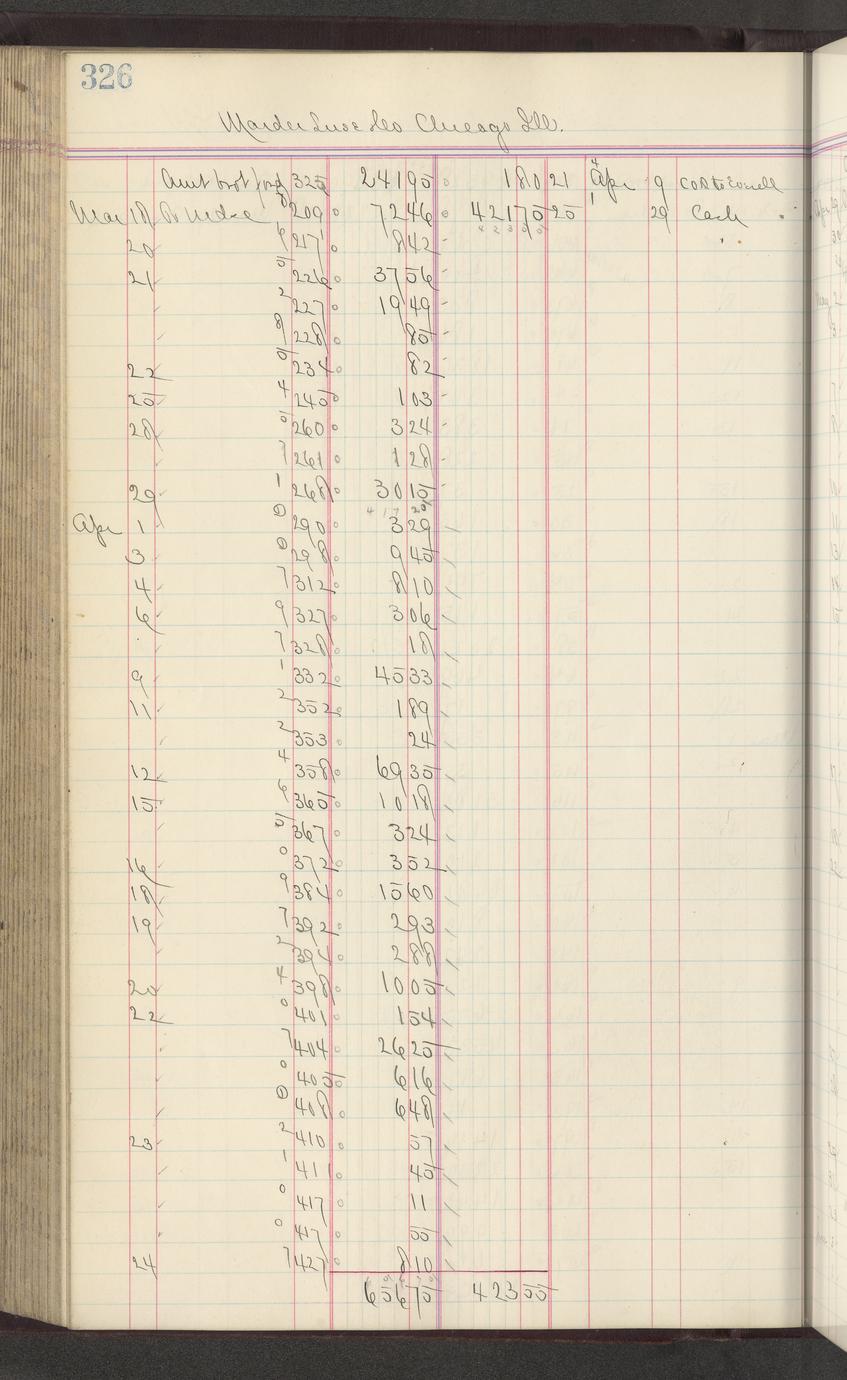 326
Marder Luse & Co Chicago Ill.
Amt brot fwd 325 241 95 1 80 21 4 Apr 9
Mar 18 To Mdse 8 209 72 46 421 75 25 1 29 Cash
20 6 217 8 42 423 55
21 5 226 37 56
2 227 19 49
8 228 85
22 5 234 82
25 4 245 1 03
28 5 260 3 24
7 261 1 28
29 1 268 30 15
417 20
Apr 1 0 290 3 29
3 0 298 9 45
4 7 312 8 10
6 9 327 3 06
7 328 18
9 1 332 45 33
11 2 352 1 89
2 353 24
12 4 358 69 35
15 6 365 10 18
5 367 3 24
16 0 372 3 52
18 9 384 15 60
19 7 392 2 93
2 394 2 88
20 4 398 10 05
22 0 401 1 54
7 404 26 25
0 405 6 16
0 408 6 48
23 2 410 57
1 411 45
0 417 11
0 417 55
24 7 427 8 10
656 75 423 55